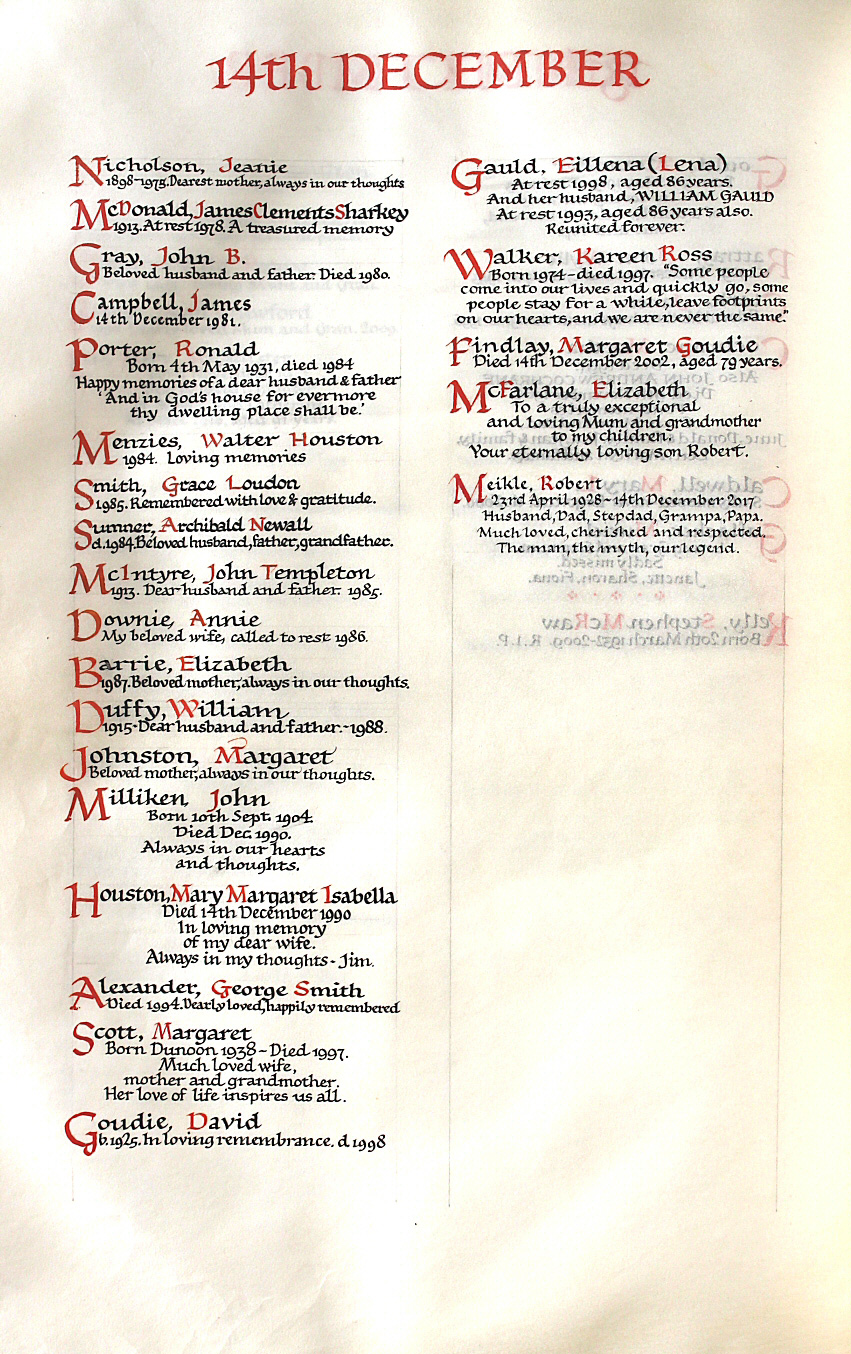 14th DECEMBER
Nicholson, Jeanie
1898-1975. Dearest mother, always in our thoughts
McDonald, James Clements Sharkey
1913. At rest 1978. A treasured memory
Gray, John B.
Beloved husband and father. Died 1980.
Campbell, James
14th December 1981.
Porter, Ronald
Born 4th May 1931, died 1984
Happy memories of a dear husband & father
'And in God's house for evermore
thy dwelling place shall be.'
Menzies, Walter Houston
1984. Loving memories
Smith, Grace Loudon
1985. Remembered with love & gratitude.
Sumner, Archibald Newall
d.1984. Beloved husband, father, grandfather.
McIntyre, John Templeton
1913. Dear husband and father. 1985.
Downie, Annie
My beloved wife, called to rest 1986.
Barrie, Elizabeth
1987. Beloved mother, always in our thoughts.
Duffy, William
1915-Dear husband and father.-1988.
Johnston, Margaret
Beloved mother, always in our thoughts.
Milliken, John
Born 10th Sept. 1904.
Died Dec. 1990.
Always in our hearts
and thoughts.
Houston, Mary Margaret Isabella
Died 14th December 1990
In loving memory
of my dear wife.
Always in my thoughts - Jim.
Alexander, George Smith
Died 1994. Dearly loved, happily remembered
Scott, Margaret
Born Dunoon 1938 - Died 1997.
Much loved wife,
mother and grandmother.
Her love of life inspires us all.
Goudie, David
b.1925. In loving remembrance. d.1998
Gauld, Eillena (Lena)
At rest 1998, aged 86 years.
And her husband, WILLIAM GAULD
At rest 1993, aged 86 years also.
Reunited forever.
Walker, Kareen Ross
Born 1974 - died 1997. "Some people
come into our lives and quickly go, some
people stay for a while, leave footprints
on our hearts, and we are never the same."
Findlay, Margaret Goudie
Died 14th December 2002, aged 79 years.
McFarlane, Elizabeth
To a truly exceptional
and loving Mum and grandmother
to my children.
Your eternally loving son Robert.
Meikle, Robert
23rd April 1928 - 14th December 2017
Husband, Dad, Stepdad, Grampa, Papa.
Much loved, cherished and respected.
The man, the myth, our legend.